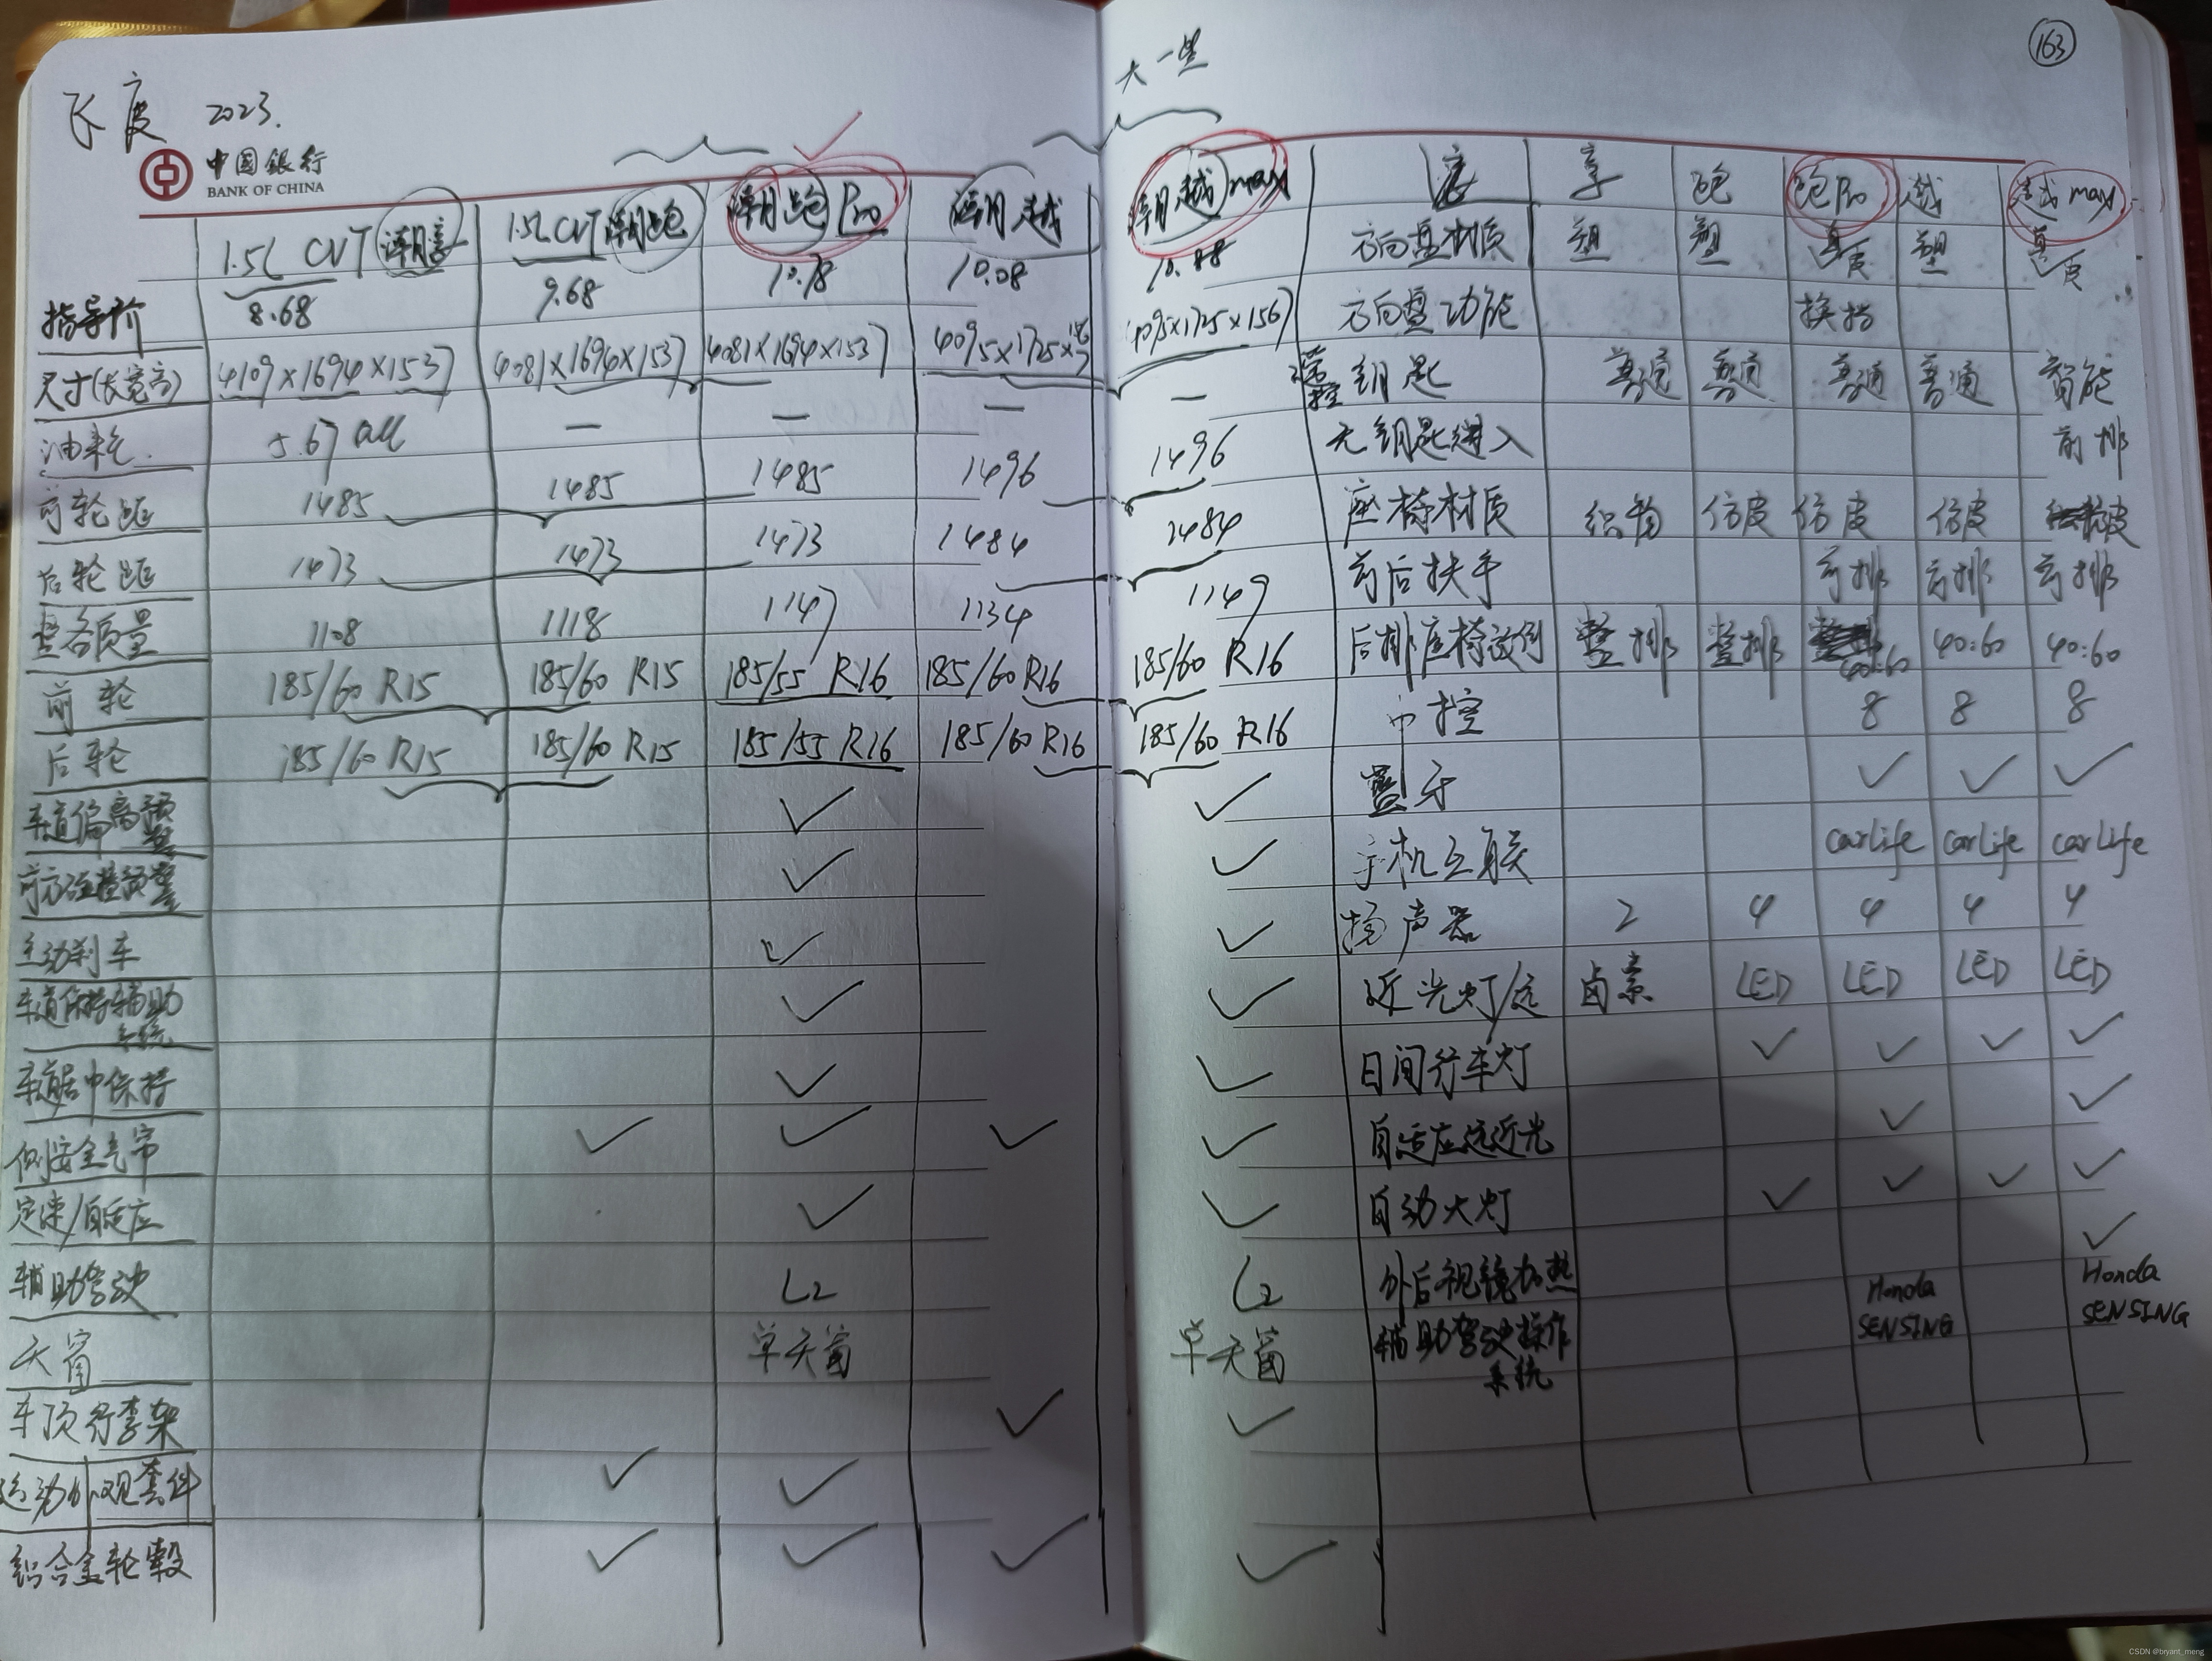 大一些
163
飞度 2023.
中国银行
BANK OF CHINA
1.5L CVT 潮享 1.5L CVT 潮跑 潮跑 Pro 潮越 潮越 max
指导价 8.68 9.68 10.18 10.08 10.88
尺寸(长宽高) 4109×1694×1537 4081×1694×1537 4081×1694×1537 4095×1725×1567 4095×1725×1567
油耗. 5.67 all — — — —
前轮距 1485 1485 1485 1496 1496
后轮距 1473 1473 1473 1484 1484
整备质量 1108 1118 1147 1134 1149
前轮 185/60 R15 185/60 R15 185/55 R16 185/60 R16 185/60 R16
后轮 185/60 R15 185/60 R15 185/55 R16 185/60 R16 185/60 R16
车道偏离预警 ✓ ✓
前方碰撞预警 ✓ ✓
主动刹车 ✓ ✓
车道保持辅助系统 ✓ ✓
车道居中保持 ✓ ✓
侧安全气帘 ✓ ✓ ✓ ✓
定速/自适应 ✓ ✓
辅助驾驶 L2 L2
天窗 单天窗 单天窗
车顶行李架 ✓ ✓
运动外观套件 ✓ ✓
铝合金轮毂 ✓ ✓ ✓ ✓
享 跑 跑Pro 越 越 max
方向盘材质 塑 塑 真皮 塑 真皮
方向盘功能 换挡
遥控钥匙 普通 普通 普通 普通 智能
无钥匙进入 前排
座椅材质 织物 仿皮 仿皮 仿皮 仿皮
前后扶手 前排 前排 前排
后排座椅放倒 整排 整排 40:60 40:60 40:60
中控 8 8 8
蓝牙 ✓ ✓ ✓
手机互联 carLife carLife carLife
扬声器 2 4 4 4 4
近光灯/远 卤素 LED LED LED LED
日间行车灯 ✓ ✓ ✓ ✓
自适应远近光 ✓ ✓
自动大灯 ✓ ✓ ✓ ✓
外后视镜加热 ✓
辅助驾驶操作系统 Honda SENSING Honda SENSING
CSDN @bryant_meng